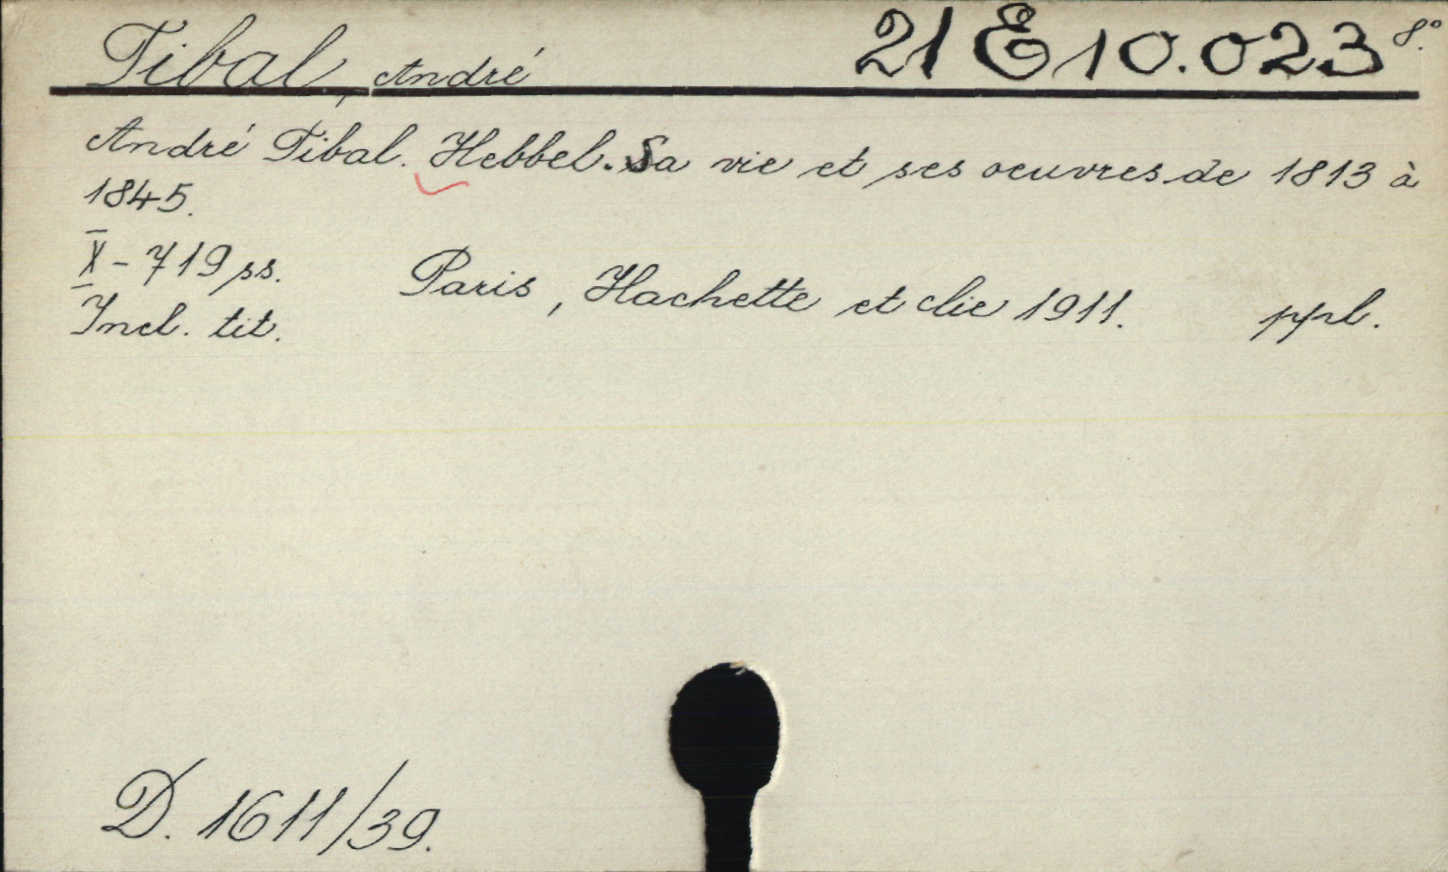 Tibal, André 21 E 10.023 8°.
André Tibal. Hebbel. Sa vie et ses oeuvres de 1813 à
1845.
X - 719 ss. Paris, Hachette et Cie 1911. ppl.
Incl. tit.
D. 1611/39.